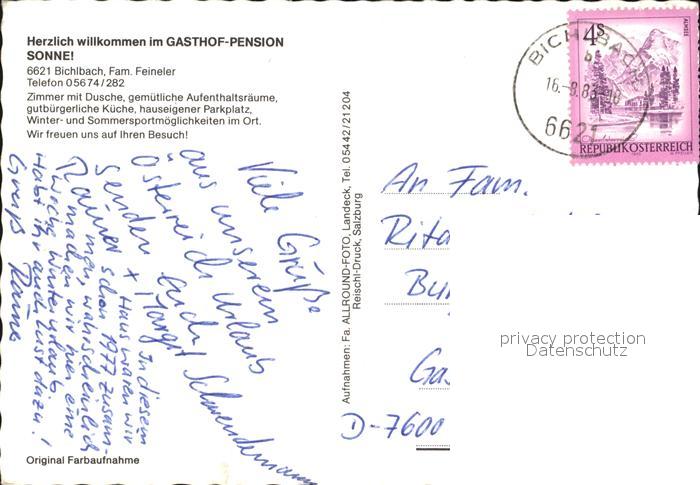 Herzlich willkommen im GASTHOF-PENSION
SONNE!
6621 Bichlbach, Fam. Feineler
Telefon 05674/282
Zimmer mit Dusche, gemütliche Aufenthaltsräume,
gutbürgerliche Küche, hauseigener Parkplatz,
Winter- und Sommersportmöglichkeiten im Ort.
Wir freuen uns auf Ihren Besuch!
Viele Grüße
aus unserem
Österreich Urlaub
senden Euch
Rainer + Margit Schwendemann
In diesem
Haus waren wir
schon 1977 zusam-
men, wahrscheinlich
machen wir hier eine
Woche Winterurlaub.
Habt Ihr auch Lust dazu?
Gruß Rainer
Original Farbaufnahme
Aufnahmen: Fa. ALLROUND-FOTO, Landeck, Tel. 05442/21204
Reischl-Druck, Salzburg
BICHLBACH
b
16.-8.83-18
6621
4S
ALMSEE
REPUBLIK ÖSTERREICH
An Fam.
Rita
D-7600
privacy protection
Datenschutz